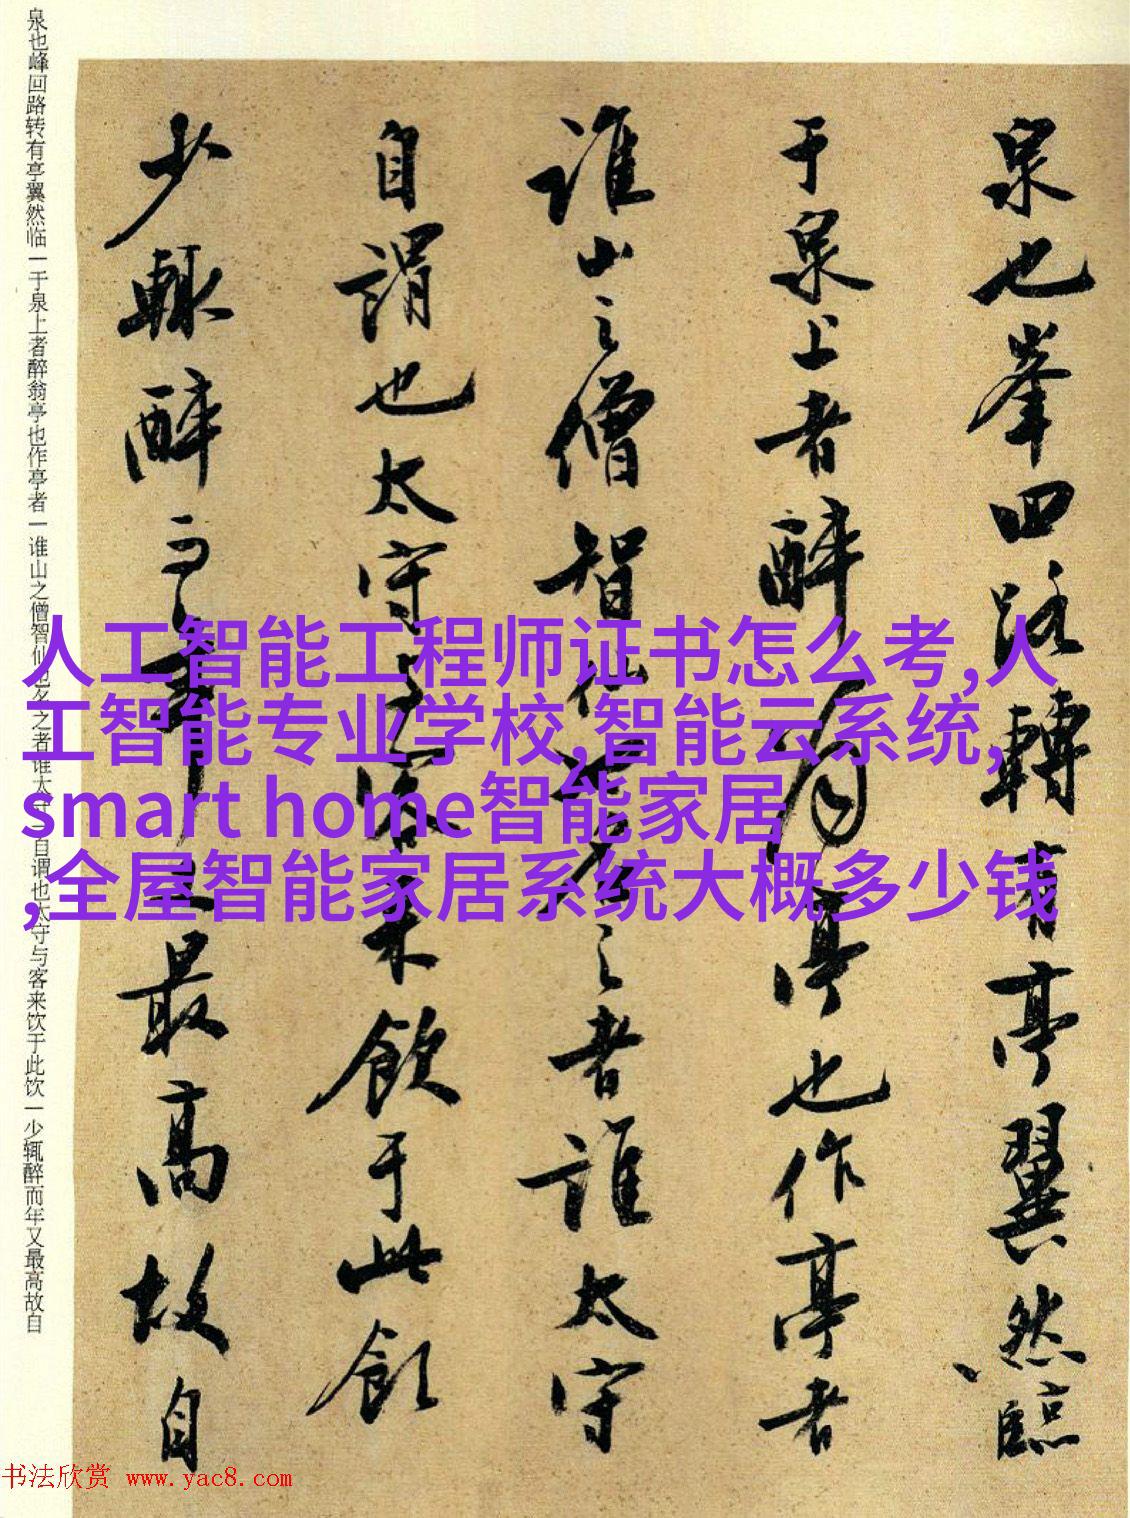 泉也峯回路轉有亭翼然臨
于泉上者醉翁亭也作亭者
誰山之僧智仙也名之者誰太守
自謂也太守与客来飲于此飲
少輒醉而年又最高故自
泉也峰回路转有亭翼然临一于泉上者醉翁亭也作亭者一谁山之僧智仙也名之者谁太守一自谓也太守与客来饮于此饮一少辄醉而年又最高故自
人工智能工程师证书怎么考,人
工智能专业学校,智能云系统,
smart home智能家居
,全屋智能家居系统大概多少钱
书法欣赏 www.yac8.com